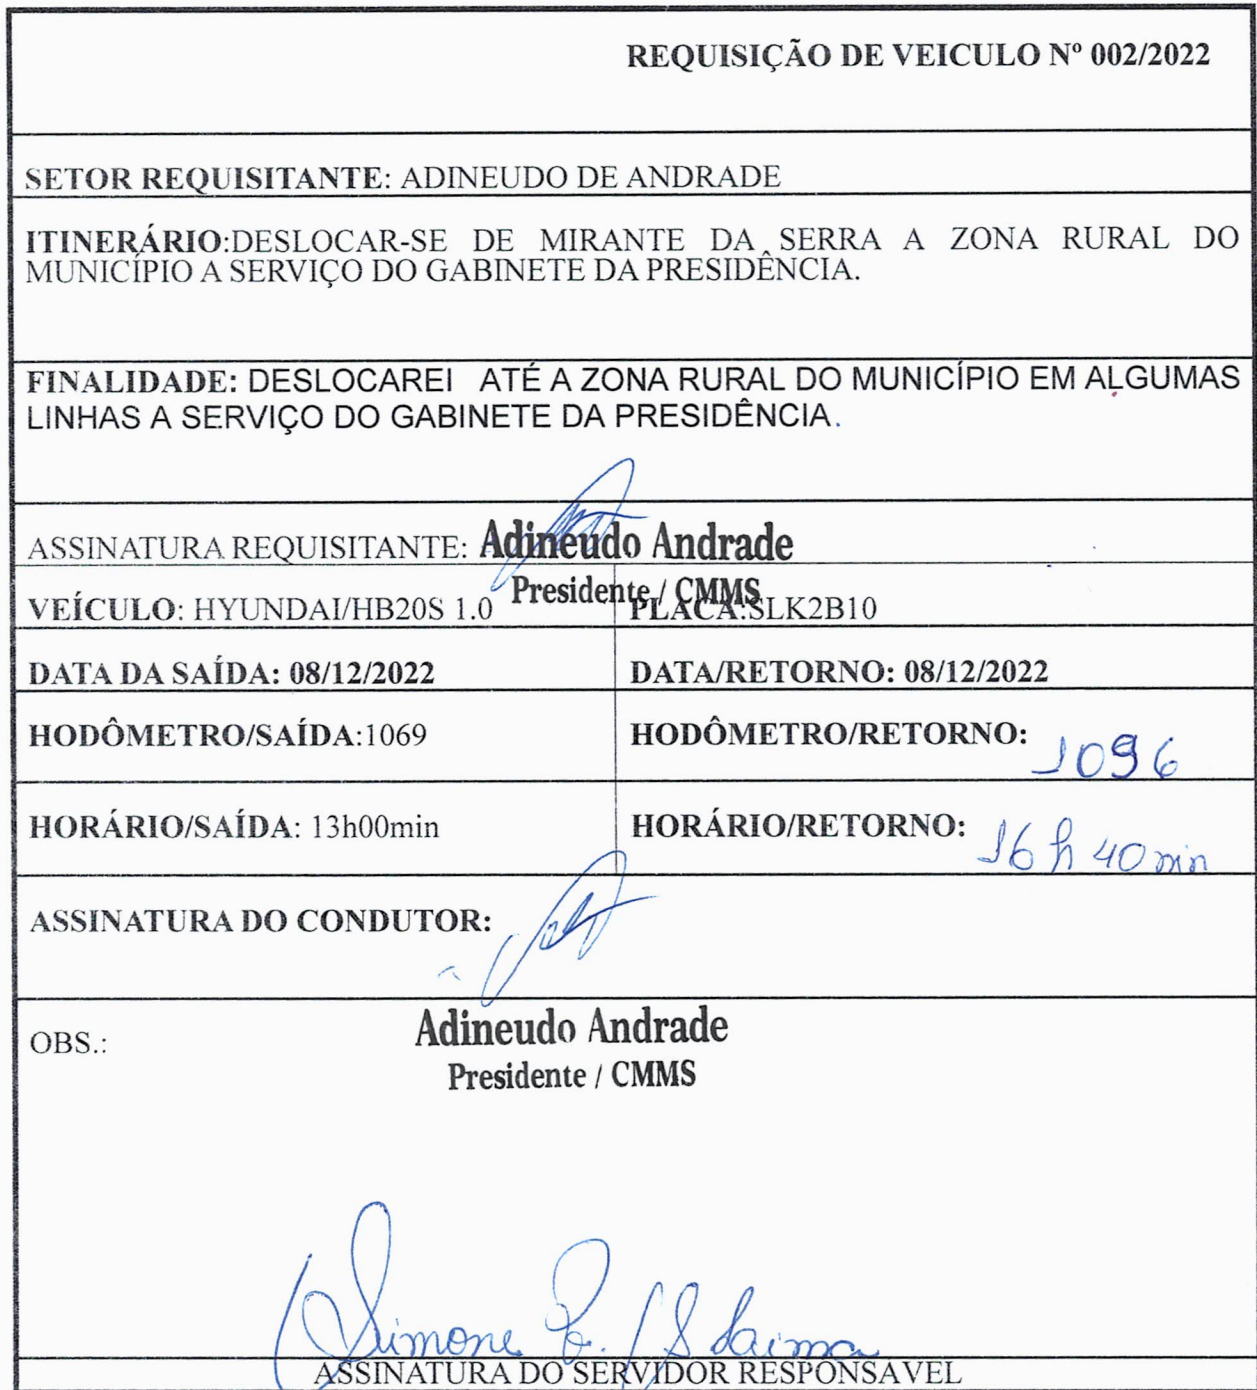 REQUISIÇÃO DE VEICULO Nº 002/2022
SETOR REQUISITANTE: ADINEUDO DE ANDRADE
ITINERÁRIO:DESLOCAR-SE DE MIRANTE DA SERRA A ZONA RURAL DO
MUNICÍPIO A SERVIÇO DO GABINETE DA PRESIDÊNCIA.
FINALIDADE: DESLOCAREI ATÉ A ZONA RURAL DO MUNICÍPIO EM ALGUMAS
LINHAS A SERVIÇO DO GABINETE DA PRESIDÊNCIA.
ASSINATURA REQUISITANTE: Adineudo Andrade
Presidente / CMMS
VEÍCULO: HYUNDAI/HB20S 1.0 PLACA:SLK2B10
DATA DA SAÍDA: 08/12/2022 DATA/RETORNO: 08/12/2022
HODÔMETRO/SAÍDA:1069 HODÔMETRO/RETORNO: 1096
HORÁRIO/SAÍDA: 13h00min HORÁRIO/RETORNO: 16h40min
ASSINATURA DO CONDUTOR:
OBS.: Adineudo Andrade
Presidente / CMMS
Simone
ASSINATURA DO SERVIDOR RESPONSAVEL